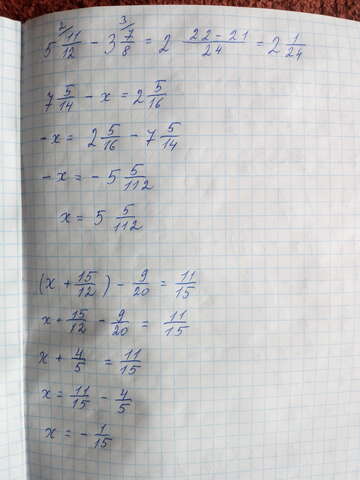 5 11/12 (2/) − 3 7/8 (3/) = 2 (22 − 21)/24 = 2 1/24
7 5/14 − x = 2 5/16
−x = 2 5/16 − 7 5/14
−x = −5 5/112
x = 5 5/112
(x + 15/12) − 9/20 = 11/15
x + 15/12 − 9/20 = 11/15
x + 4/5 = 11/15
x = 11/15 − 4/5
x = −1/15